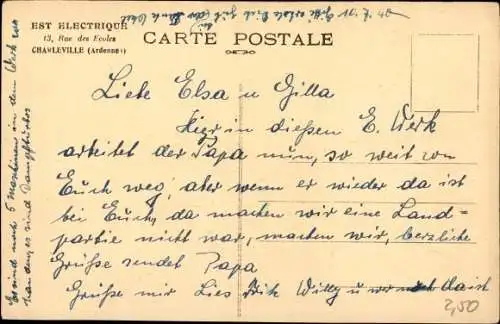 EST ELECTRIQUE
13, Rue des Ecoles
CHARLEVILLE (Ardennes)
CARTE POSTALE
Liebe Elsa u Gilla
Hier in dießen E. Werk
arbeitet der Papa nun, so weit von
Euch weg, aber wenn er wieder da ist
bei Euch, da machen wir eine Land=
partie nicht war, machen wir, herzliche
Grüße sendet Papa
Grüße mir Lies Willy u
Es sind noch 5 Maschinen in dem Werk
es sind Dampfturbos
2,50